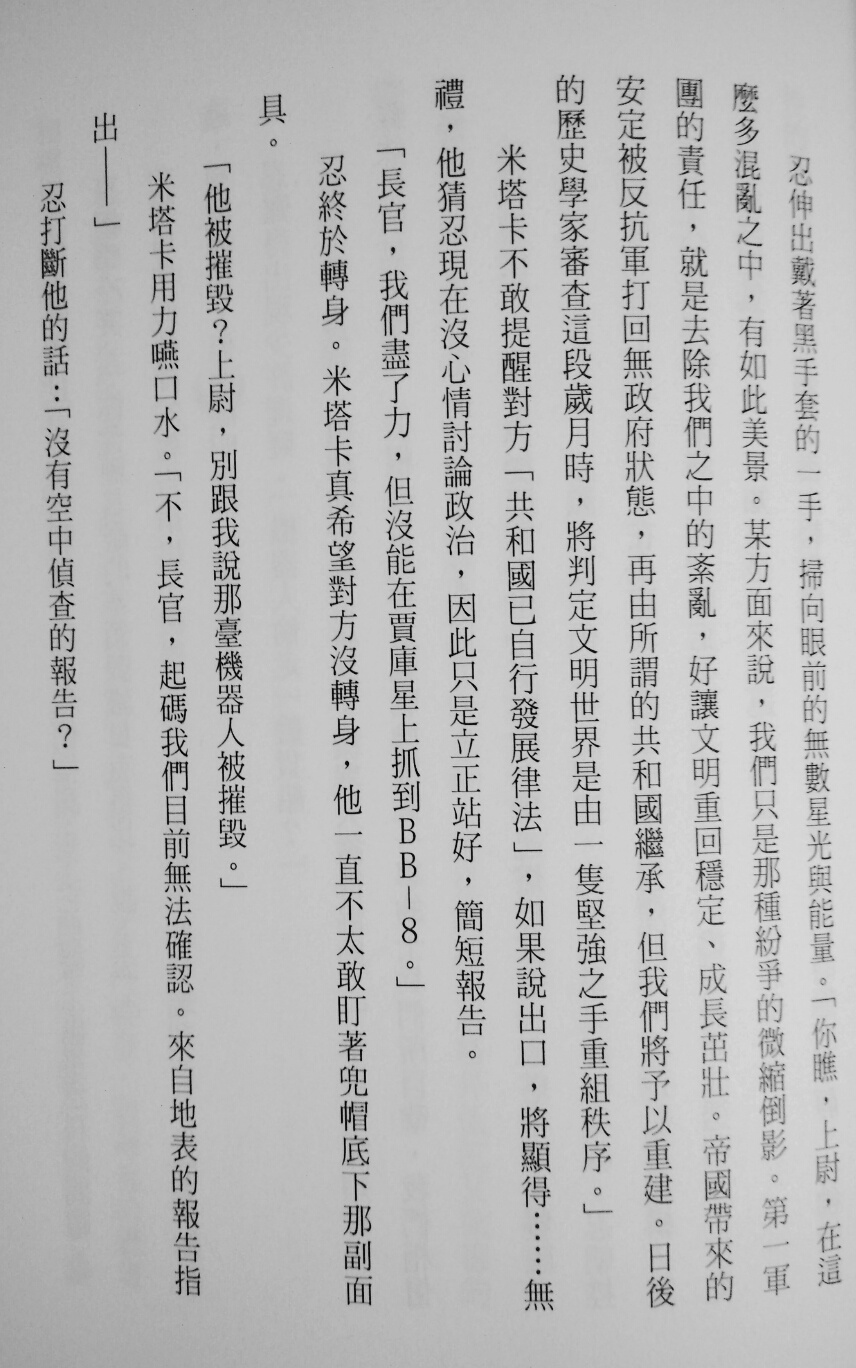 忍伸出戴著黑手套的一手，掃向眼前的無數星光與能量。「你瞧，上尉，在這
麼多混亂之中，有如此美景。某方面來說，我們只是那種紛爭的微縮倒影。第一軍
團的責任，就是去除我們之中的紊亂，好讓文明重回穩定、成長茁壯。帝國帶來的
安定被反抗軍打回無政府狀態，再由所謂的共和國繼承，但我們將予以重建。日後
的歷史學家審查這段歲月時，將判定文明世界是由一隻堅強之手重組秩序。」
米塔卡不敢提醒對方「共和國已自行發展律法」，如果說出口，將顯得……無
禮，他猜忍現在沒心情討論政治，因此只是立正站好，簡短報告。
「長官，我們盡了力，但沒能在賈庫星上抓到ＢＢ－８。」
忍終於轉身。米塔卡真希望對方沒轉身，他一直不太敢盯著兜帽底下那副面
具。
「他被摧毀？上尉，別跟我說那臺機器人被摧毀。」
米塔卡用力嚥口水。「不，長官，起碼我們目前無法確認。來自地表的報告指
出——」
忍打斷他的話：「沒有空中偵查的報告？」